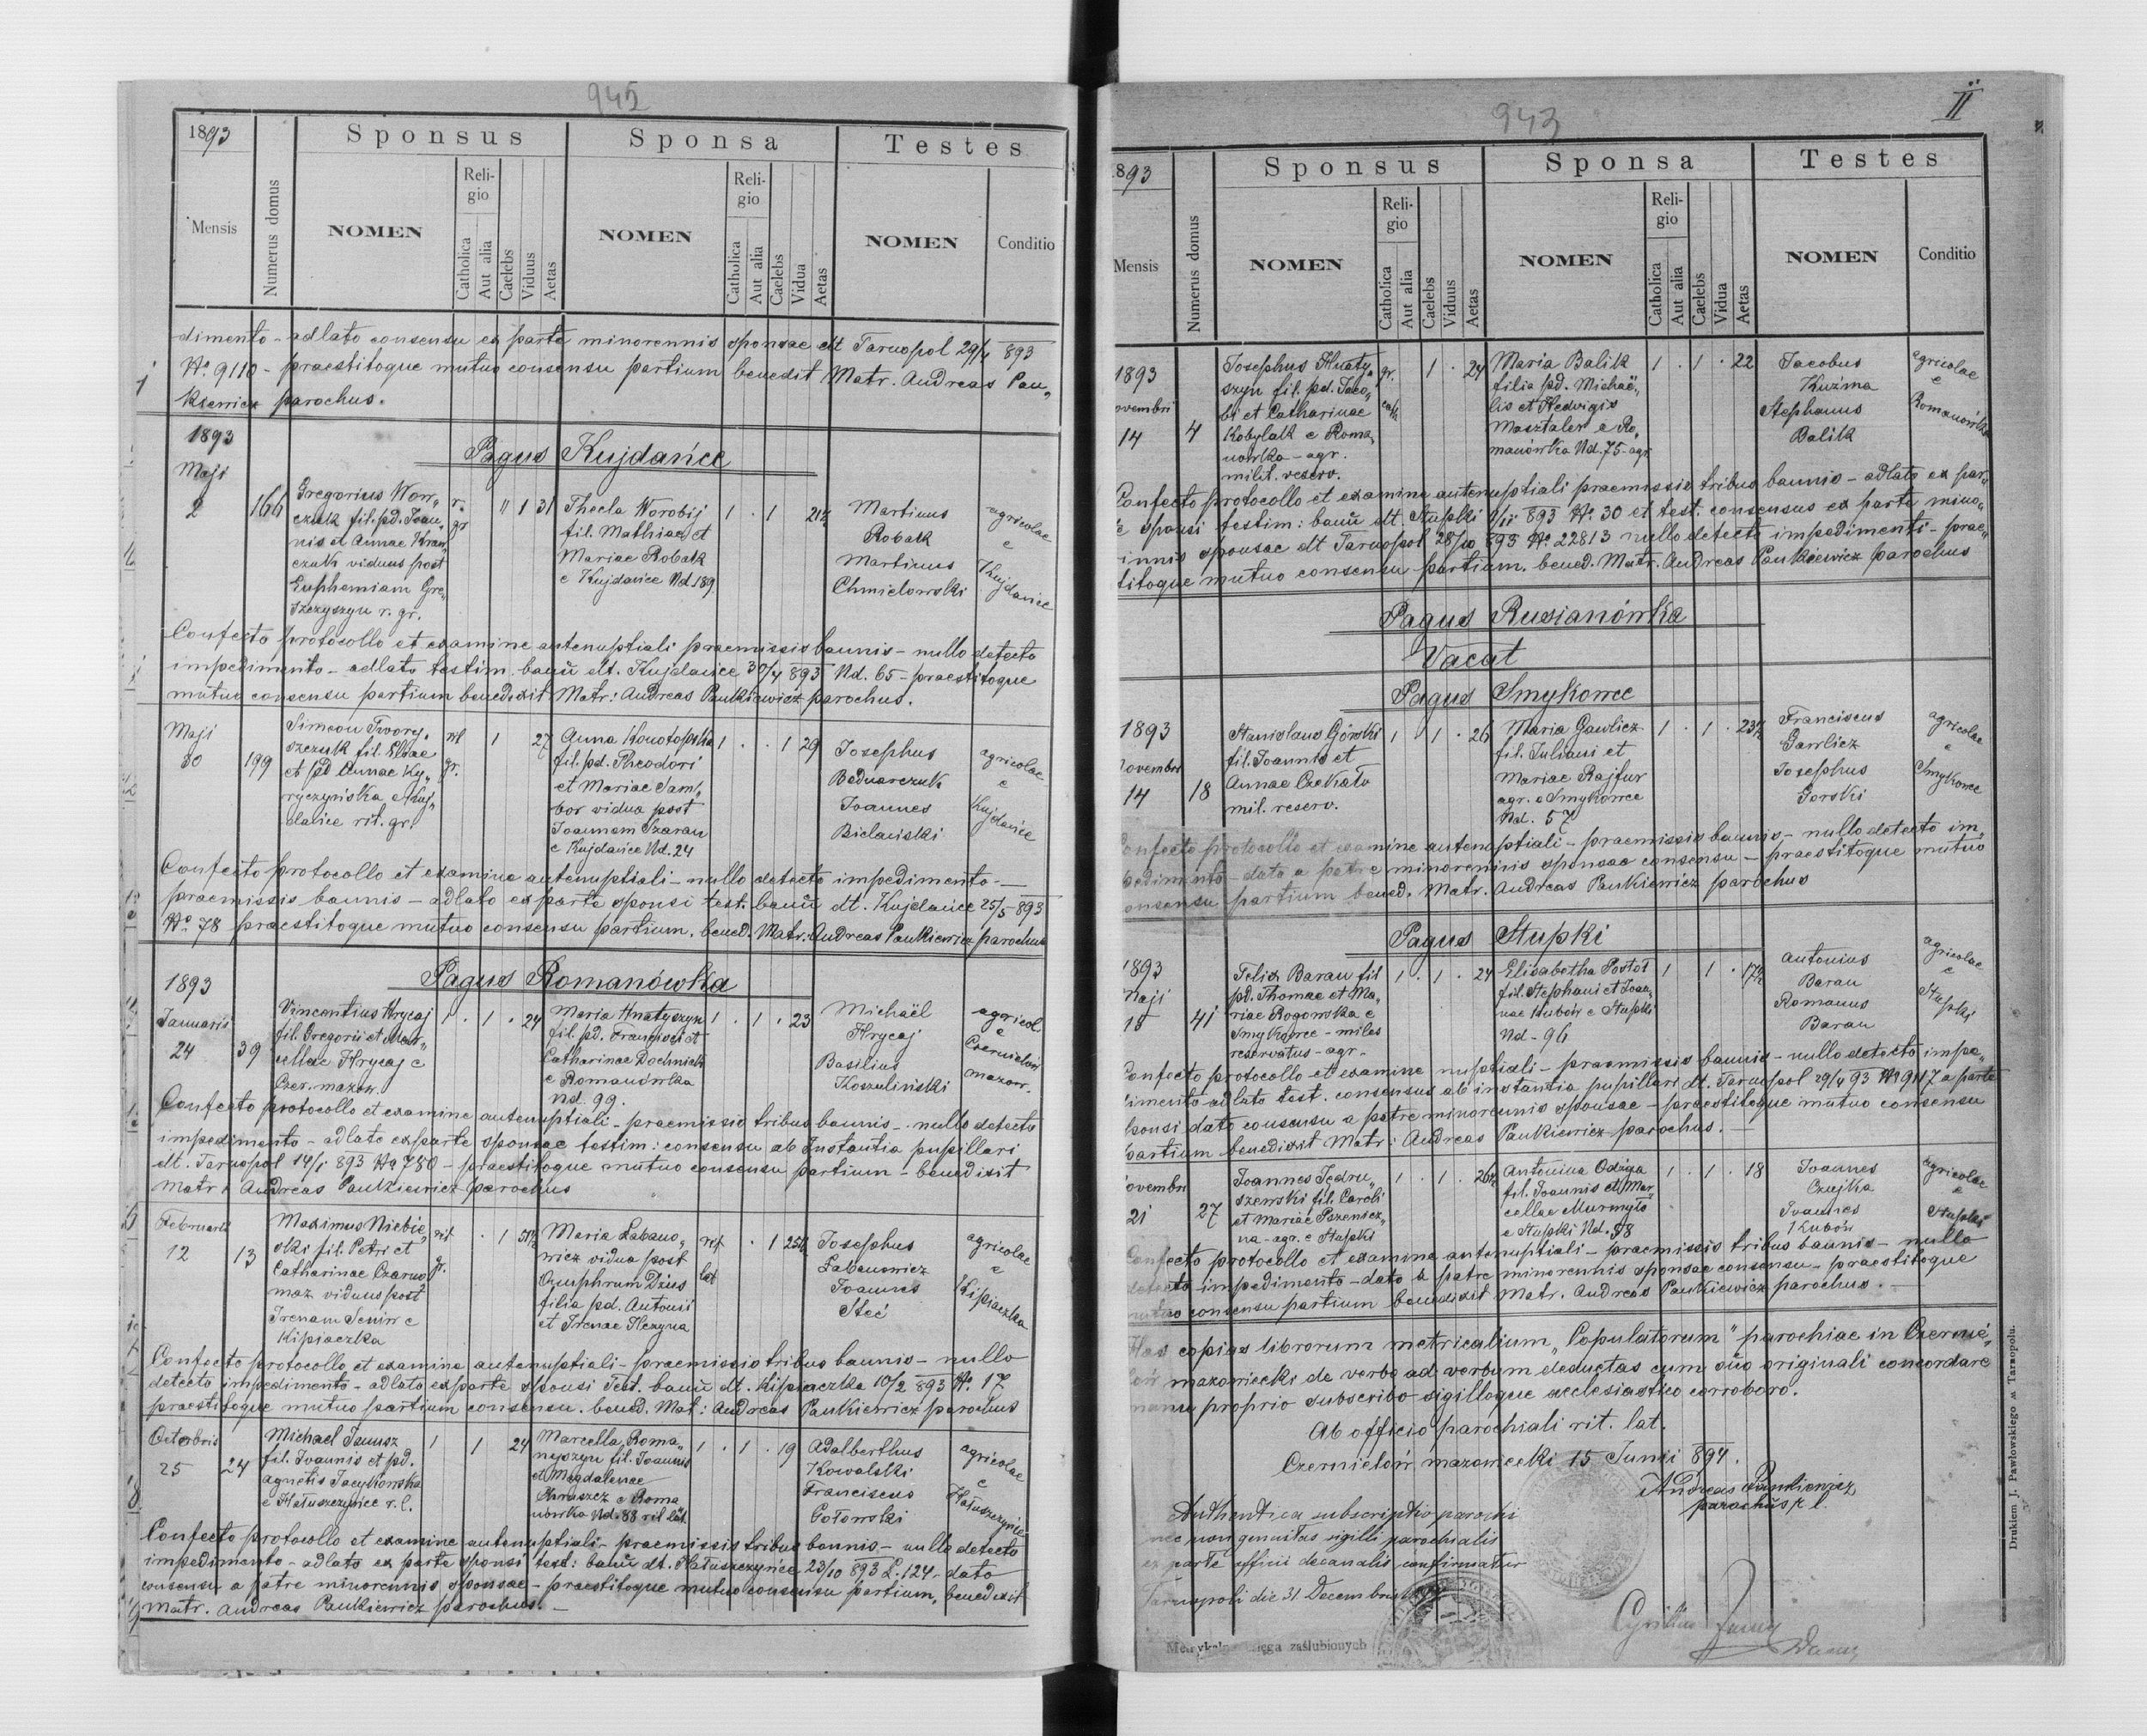 945
1893
Sponsus
Sponsa
Testes
Mensis
Numerus domus
NOMEN
Reli-
gio
Catholica
Aut alia
Caelebs
Viduus
Aetas
NOMEN
Reli-
gio
Catholica
Aut alia
Caelebs
Vidua
Aetas
NOMEN
Conditio
dimento - adlato consensu ex parte minorennis sponsae dt Tarnopol 29/4 893
No 9110 - praestitoque mutuo consensu partium benedit Matr. Andreas Pan„
kiewicz parochus.
1893
Pagus Kujdańce
Maji
2
166
Gregorius Wow„
czuk fil. pd. Joan„
nis et Annae Kraw„
czuk viduus post
Euphemiam Gre„
szczyszyn r. gr.
r.
gr
" 1 31
Thecla Worobij
fil. Mathiae et
Mariae Robak
e Kujdańce Nd. 189.
1 . 1 21½
Martinus
Robak
Martinus
Chmielowski
agricolae
e
Kujdańce
Confecto protocollo et examine antenuptiali praemissis bannis - nullo detecto
impedimento - adlato testim. bann dt. Kujdańce 30/4 893 Nd. 65 - praestitoque
mutuo consensu partium benedixit Matr: Andreas Pankiewicz parochus.
Maji
30
199
Simeon Twory„
szczuk fil. Eliae
et pd Annae Ky„
ryczyńska e Kuj„
dańce rit. gr.
rit
gr.
1 27
Anna Konotopska
fil. pd. Theodori
et Mariae Sam„
bor vidua post
Joannem Szaran
e Kujdańce Nd. 24
1 . . 1 29
Josephus
Bednarczuk
Joannes
Bielański
agricolae
e
Kujdańce
Confecto protocollo et examine antenuptiali - nullo detecto impedimento -
praemissis bannis - adlato ex parte sponsi test. bann dt. Kujdańce 25/5 893
No 78 praestitoque mutuo consensu partium. bened. Matr. Andreas Pankiewicz parochus
1893
Pagus Romanówka
Januarii
24
39
Vincentius Hrycaj
fil. Gregorii et Mar„
cellae Hrycaj e
Czer. mazow.
1 . 1 . 24
Maria Hnatyszyn
fil. pd. Francisci et
Catharinae Dochniak
e Romanówka
nd. 99.
1 . 1 . 23
Michaël
Hrycaj
Basilius
Koszuliński
agricol.
e
Czernielów
mazow.
Confecto protocollo et examine antenuptiali - praemissis tribus bannis - nullo detecto
impedimento - adlato ex parte sponsae testim: consensu ab Instantia pupillari
dt. Tarnopol 14/1 893 No 780 - praestitoque mutuo consensu partium - benedixit
Matr: Andreas Pankiewicz parochus
Februarii
12
13
Maximus Niebie„
ski fil. Petri et
Catharinae Czarno„
maz viduus post
Irenam Seniw e
Kipiaczka
rit
gr.
. 1 51½
Maria Labano„
wicz vidua post
Onuphrum Dżus
filia pd. Antonii
et Irenae Hczyna
rit
lat
. 1 25½
Josephus
Labanowicz
Joannes
Steć
agricolae
e
Kipiaczka
Confecto protocollo et examine antenuptiali - praemissis tribus bannis - nullo
detecto impedimento - adlato ex parte sponsi Test. bann dt. Kipiaczka 10/2 893 No. 17
praestitoque mutuo partium consensu. bened. Mat: Andreas Pankiewicz parochus
Octobris
25
24
Michael Janusz
fil. Joannis et pd.
Agnetis Jacykowska
e Hałuszczyńce r. l.
1 1 24
Marcella Roma„
nyszyn fil. Joannis
et Magdalenae
Chruszcz e Roma
nówka Nd. 88 rit lat.
1 . 1 . 19
Adalberthus
Kowalski
Franciscus
Gotowski
agricolae
e
Hałuszczyńce
Confecto protocollo et examine antenuptiali - praemissis tribus bannis - nullo detecto
impedimento - adlato ex parte sponsi test: bann dt. Hałuszczyńce 23/10 893 L. 124 - dato
consensu a patre minorennis sponsae - praestitoque mutuo consensu partium, benedixit
Matr. Andreas Pankiewicz parochus. -
943
II
1893
Sponsus
Sponsa
Testes
Mensis
Numerus domus
NOMEN
Reli-
gio
Catholica
Aut alia
Caelebs
Viduus
Aetas
NOMEN
Reli-
gio
Catholica
Aut alia
Caelebs
Vidua
Aetas
NOMEN
Conditio
1893
ovembri
14
4
Josephus Hnaty„
szyn fil. pd. Jaco„
bi et Catharinae
Kobylak e Roma„
nówka - agr.
milit. reserv.
gr.
cath
1 . 24
Maria Balik
filia pd. Michaë„
lis et Hedvigis
Masztaler e Ro„
manówka Nd. 75 - agr.
1 . 1 . 22
Jacobus
Kuźma
Stephanus
Balik
agricolae
e
Romanówka
Confecto protocollo et examine antenuptiali praemissis tribus bannis - adlato ex par„
e sponsi testim: bann dt. Stupki 9/11 893 No. 30 et test. consensus ex parte mino„
innis sponsae dt Tarnopol 28/10 893 No 22813 nullo detecto impedimenti - prae„
titoque mutuo consensu partium. bened. Matr. Andreas Pankiewicz parochus
Pagus Rusianówka
Vacat
Pagus Smykowce
1893
ovembri
14
18
Stanislaus Górski
fil. Joannis et
Annae Czekało
mil. reserv.
1 1 . 26
Maria Gawlicz
fil. Juliani et
Mariae Rajfur
agr. e Smykowce
Nd. 57
1 . 1 . 23½
Franciscus
Gawlicz
Josephus
Gorski
agricolae
e
Smykowce
Confecto protocollo et examine antenuptiali - praemissis bannis - nullo detecto im„
pedimento - dato a patre minorennis sponsae consensu - praestitoque mutuo
onsensu partium bened. Matr. Andreas Pankiewicz parochus
Pagus Stupki
1893
Maji
18
41
Felix Baran fil
pd. Thomae et Ma„
riae Rogowska e
Smykowce - miles
reservatus - agr -
1 . 1 . 24
Elisabetha Postoł
fil. Stephani et Joan„
nae Kubów e Stupki
Nd - 96
1 1 . 17½
Antonius
Baran
Romanus
Baran
agricolae
e
Stupki
Confecto protocollo et examine nuptiali - praemissis bannis - nullo detecto impe„
dimento adlato test. consensus ab instantia pupillari dt. Tarnopol 29/4 93 No 9117 a parte
sponsi dato consensu a patre minorennis sponsae - praestitoque mutuo consensu
partium benedixit Matr: Andreas Pankiewicz parochus. -
ovembri
21
27
Joannes Jędru„
szewski fil. Caroli
et Mariae Pszenicz„
na - agr. e Stupki
1 . 1 . 26½
Antonina Odżga
fil. Joannis et Mar„
cellae Murmyło
e Stupki Nd. 58
1 . 1 . 18
Joannes
Czujka
Joannes
Kubów
agricolae
e
Stupki
Confecto protocollo et examine antenuptiali - praemissis tribus bannis - nullo
detecto impedimento - dato a patre minorennis sponsae consensu - praestitoque
mutuo consensu partium benedixit Matr. Andreas Pankiewicz parochus. -
Has copias librorum metricalium „Copulatorum" parochiae in Czernie„
lów mazowiecki de verbo ad verbum deductas cum suo originali concordare
manu proprio subscribo sigilloque ecclesiastico corroboro.
Ab officio parochiali rit. lat.
Czernielów mazowiecki 15 Junii 894.
Andreas Pankiewicz
parochus r. l.
Authentica subscriptio parochi
nec non genuitas sigilli parochialis
ex parte officii decanalis confirmatur
Tarnopoli die 31 Decembris
Metrykalna księga zaślubionych
Drukiem J. Pawłowskiego w Tarnopolu.